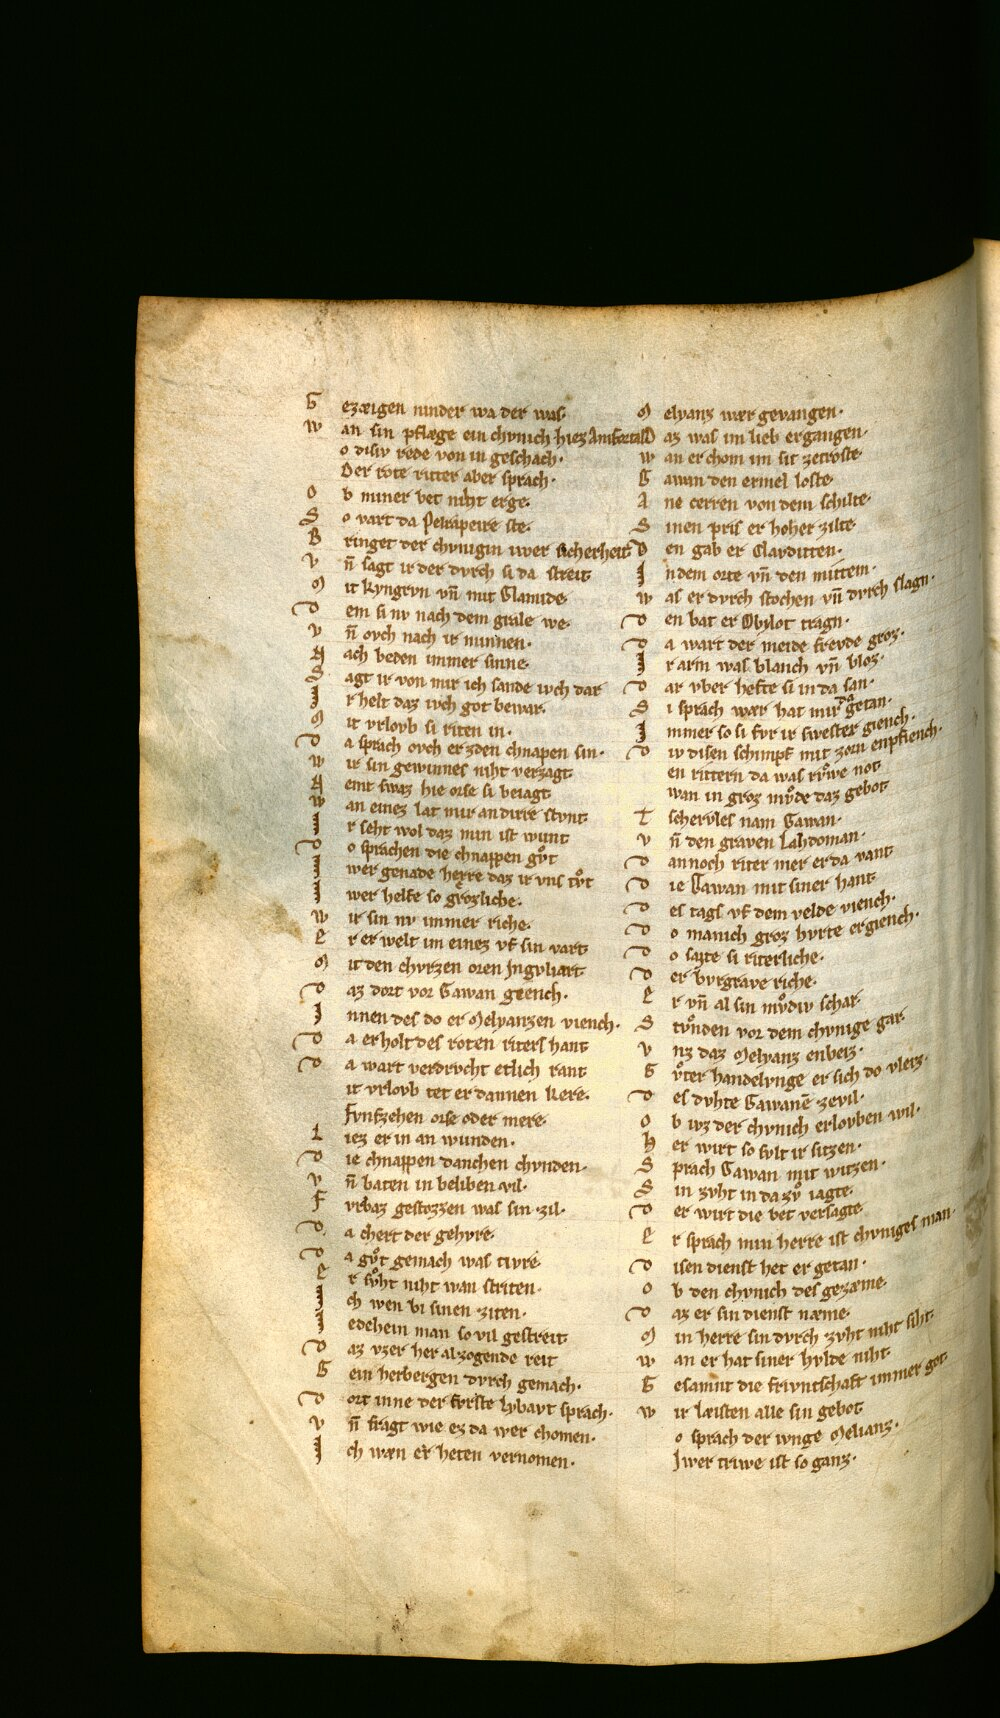 G ezæigen ninder wa der was·
W an sin pflæge ein chvnich hiez Amfortas
o disiv rede von in geschach·
Der rote ritter aber sprach·
O b miner bet niht erge·
S o vart da Pelrapeire ste·
B ringet der chvnigin iwer sicherheit
V n̄ sagt ir der dvrch si da streit
M it kyngrvn vn̄ mit Clamide
D em si nv nach dem grale we·
V n̄ ovch nach ir minnen·
N ach beden immer sinne·
S agt ir von mir ich sande iwch dar
I r helt daz iwch got bewar·
M it vrlovb si riten in·
D a sprach ovch er zden chnapen sin·
W ir sin gewinnes niht verzagt
N emt swaz hie orse si beiagt
W an einez lat mir an dirre stvnt
I r seht wol daz min ist wunt
D o sprachen die chnappen gv̊t
I wer genade herre daz ir vns tv̊t
I wer helfe so grozliche·
W ir sin nv immer riche·
E r er welt im einez vf sin vart
M it den chvrzen oren Ingvliart
D az dort vor Gawan giench·
I nnen des do er Melyanzen viench·
D a erholt des roten riters hant
D a wart verdrvcht etlich rant
it vrlovb tet er dannen kere·
Fvnfzehen orse oder mere·
L iez er in an wunden·
D ie chnappen danchen chvnden·
V n̄ baten in beliben vil·
F vrbaz gestozzen was sin zil·
D a chert der gehvre·
D a gv̊t gemach was tivre·
E r sv̊ht niht wan striten·
I ch wen bi sinen ziten·
I edehein man so vil gestreit
D az vzer her al zogende reit
G ein herbergen dvrch gemach·
D ort inne der fvrste Lybavt sprach·
V n̄ fragt wie ez da wer chomen·
I ch wæn er heten vernomen·
M elyanz wær gevangen·
D az was im lieb ergangen·
W an er chom im sit zetroste·
G awan den ermel loste
A ne cerren von dem schilte·
S inen pris er hoher zilte
D en gab er Clavditten·
I n dem orte vn̄ den mittein·
W as er dvrch stochen vn̄ dvrch slagn·
D en bat er Obylot tragn·
D a wart der meide frevde groz·
I r arm was blanch vn̄ bloz·
D ar vber hefte si in da san·
S i sprach wær hat mir da getan·
I mmer so si fvr ir swester giench·
D iv disen schimpf mit zorn enpfiench·
en rittern da was rv̊we not
wan in groz mv̊de daz gebot
T schervles nam Gawan·
V n̄ den graven Lahdoman·
D annoch riter mer er da vant
D ie Gawan mit siner hant
D es tags vf dem velde viench·
D o manich groz hvrte ergiench·
D o sazte si riterliche·
D er bvrgrave riche·
E r vn̄ al sin mv̊div schar
S tv̊nden vor dem chvnige gar
V nz daz Melyanz enbeiz·
G v̊ter handelvnge er sich do vleiz·
D es dvhte Gawanē zevil·
O b ivz der chvnich erlovben wil·
H er wirt so svlt ir sitzen·
S prach Gawan mit witzen·
S in zvht in da zv̊ iagte·
D er wirt die bet versagte·
E r sprach min herre ist chvniges man·
D isen dienst het er getan·
O b den chvnich des gezæme·
D az er sin dienst næme·
M in herre sin dvrch zvht niht siht·
W an er hat siner hvlde niht·
G esamnt die frivntschaft immer got·
W ir læisten alle sin gebot
o sprach der ivnge Melianz·
Iwer triwe ist so ganz·